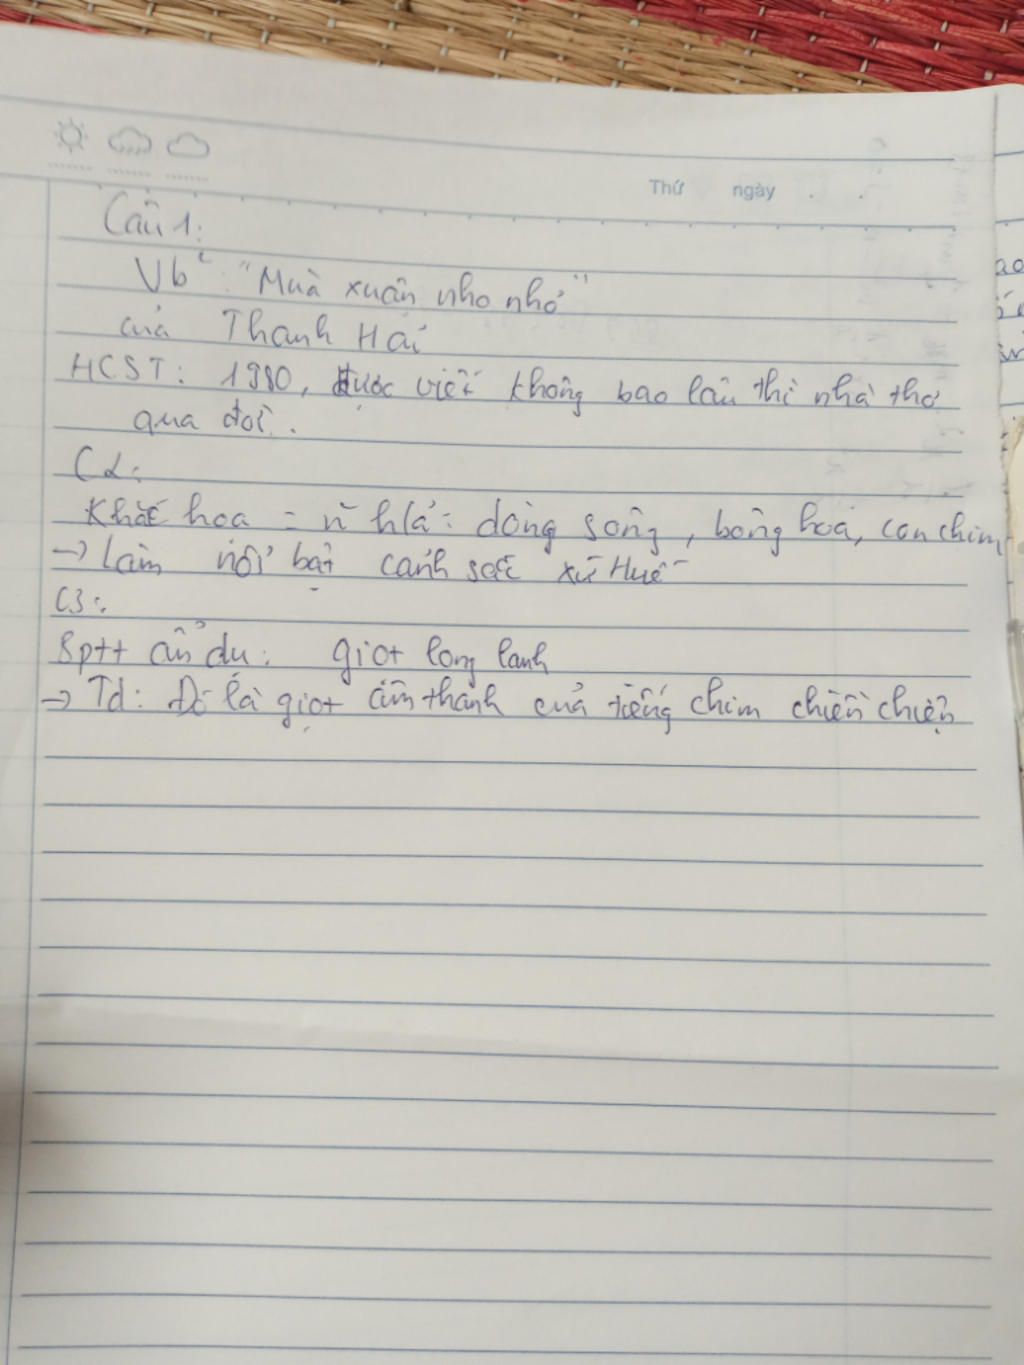 Thứ ngày
Câu 1:
Vb: "Mùa xuân nho nhỏ"
của Thanh Hải
HCST: 1980, được viết không bao lâu thì nhà thơ
qua đời.
C2:
Khắc hoạ = n~ h/ả: dòng sông, bông hoa, con chim
→ Làm nổi bật cảnh sắc xứ Huế
C3:
Bptt ẩn dụ: giọt long lanh
→ Td: Đó là giọt âm thanh của tiếng chim chiền chiện